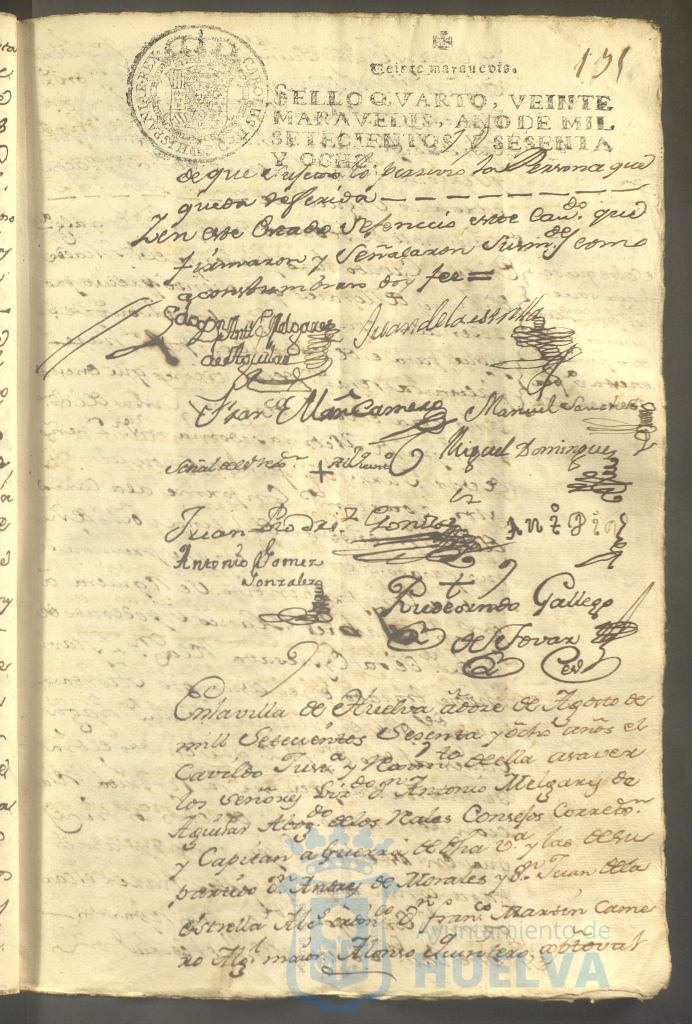 Veinte marauedis.
191
CAROLUS III D. G. HISPANIAR. REX
SELLO QVARTO, VEINTE
MARAVEDIS, AÑO DE MIL
SETECIENTOS Y SESENTA
Y OCHO.
de que la Persona que
queda referida
Y en este estado se fenecio este Cavdo. que
firmaron y Señalaron Sus mrdes como
acostumbran doy fee =
Ldo. Dn. Anto. Melgarejo
de Aguilar
Juan de la estrella
Franco. Mañ Camero
Manuel Sanchez
Señal del Sr. Rexor. + Alo. Quintero
Miguel Dominguez
Juan Rodrz.
Antonio Gomez
Gonzalez
Rudesindo Gallego
de Tovar
En la villa de Huelva a doze de Agosto de
mill Setecientos Sesenta y ocho años el
Cavildo Justa. y Rexmto. de ella a saver
los Señores Lizdo. Dn. Antonio Melgarejo de
Aguilar Abogdo. de los Rales Consejos Corredor.
y Capitan a Guerra de dha va. y las de su
partido Dn. Andres de Morales y Dn. Juan de la
estrella Dn. Franco. Martin Came
ro Algl. maior, Alonso Quintero,
Ayuntamiento de
HUELVA